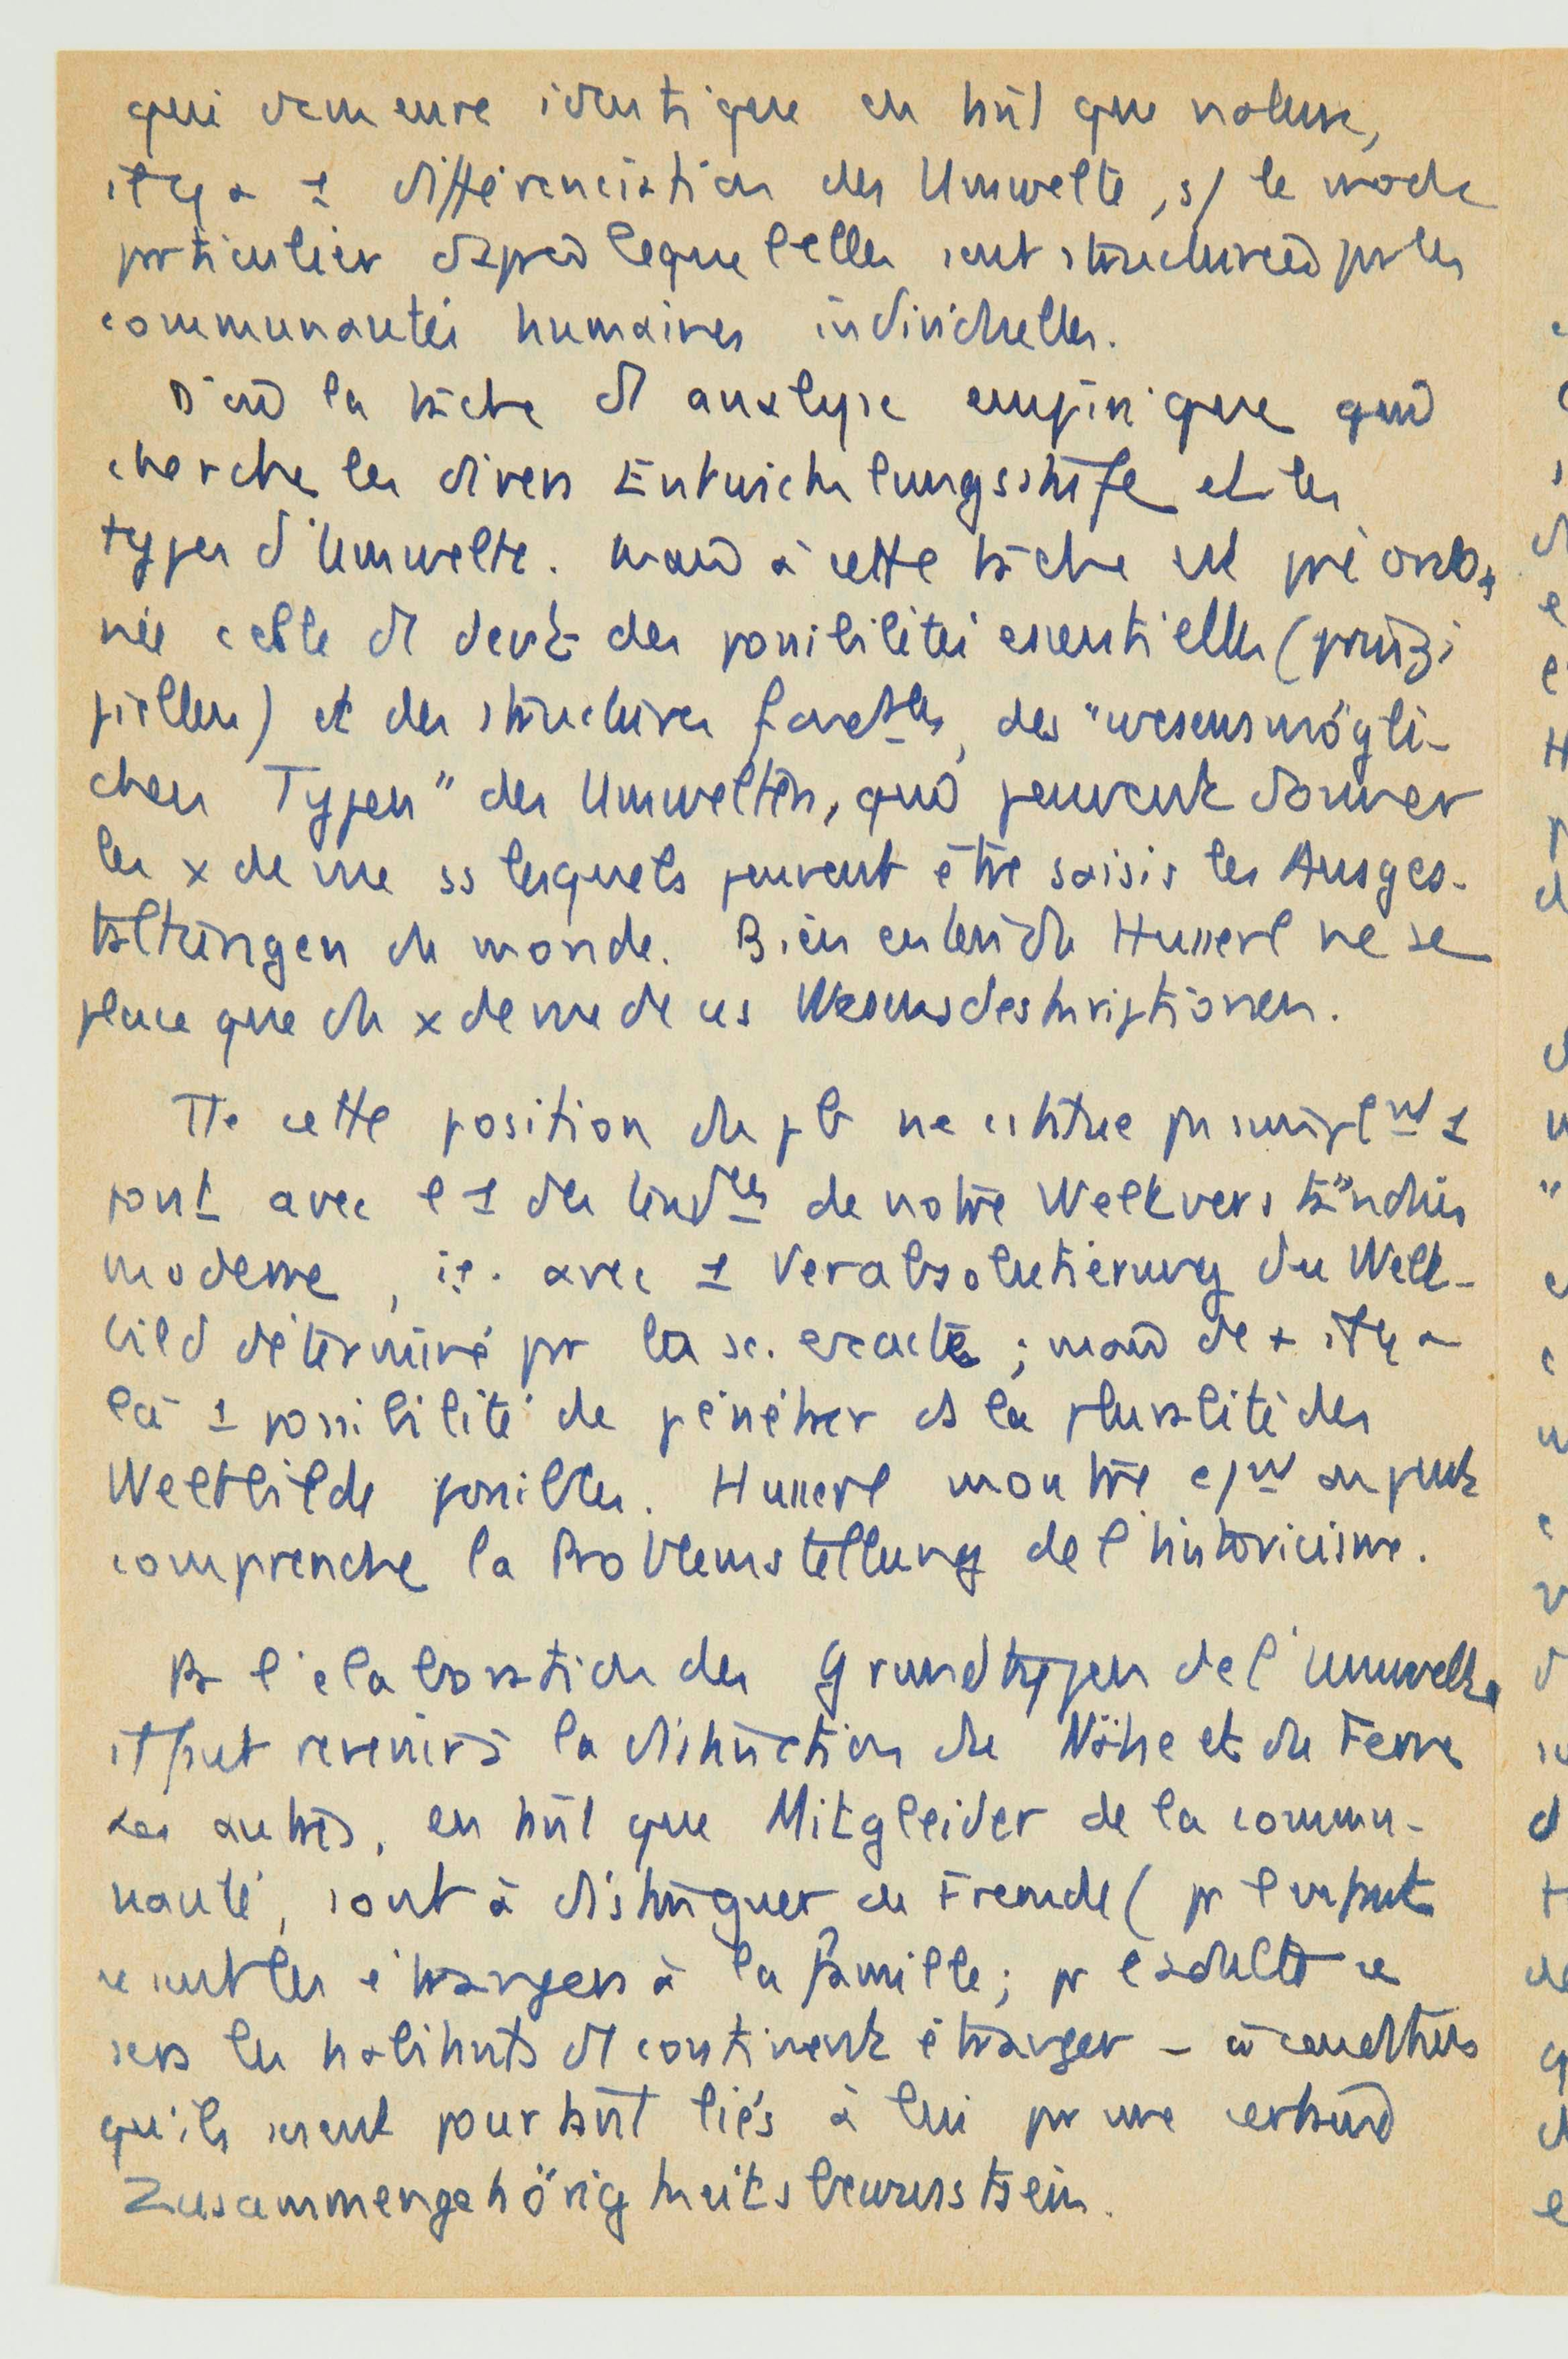 qui demeure identique en tût que nature,
il y a 1 différenciation des Umwelte, s/ le mode
prticulier dapres lequel elles sont structurées pr les
communautés humaines individuelles.
D'où la tâche d analyse empirique qui
cherche les divers Entwicklungsstufe et les
types d'Umwelte. Mais à cette tâche est préordon
née celle d des possibilités essentielles (prinzi
piellen) et des structures fondtles, des "wesensmögli-
chen Typen" des Umwelten, qui peuvent donner
les x de vue ss lesquels peuvent être saisis les Ausges-
taltungen du monde. Bien entendu Husserl ne se
place que du x de vue de ces Wesensdeskriptionen.
Tte cette position du pb ne contitue pas simplnt 1
pont avec l 1 des tendces de notre Weltverständnis
moderne, i.e. avec 1 Verabsolutierung du Welt-
bild déterminé pr la sc. exacte ; mais de + il y a
là 1 possibilité de pénétrer ds la pluralité des
Weltbilde possibles. Husserl montre c/nt on peut
comprendre la Problemstellung de l'historicisme.
Ps l'élaboration des Grundtypen de l'Umwelt
il fut revenir à la distinction du Nähe et du Ferne
Les autres, en tût que Mitgleider de la commu-
nauté, sont à distinguer des Fremde ( pr l enfant
ce sont les étrangers à la famille ; pr l'adulte ce
sers les habitants d continent étranger –
qu'ils soient pourtant liés à lui pr une certaine
Zusammengehörigkeitsbewusstsein.